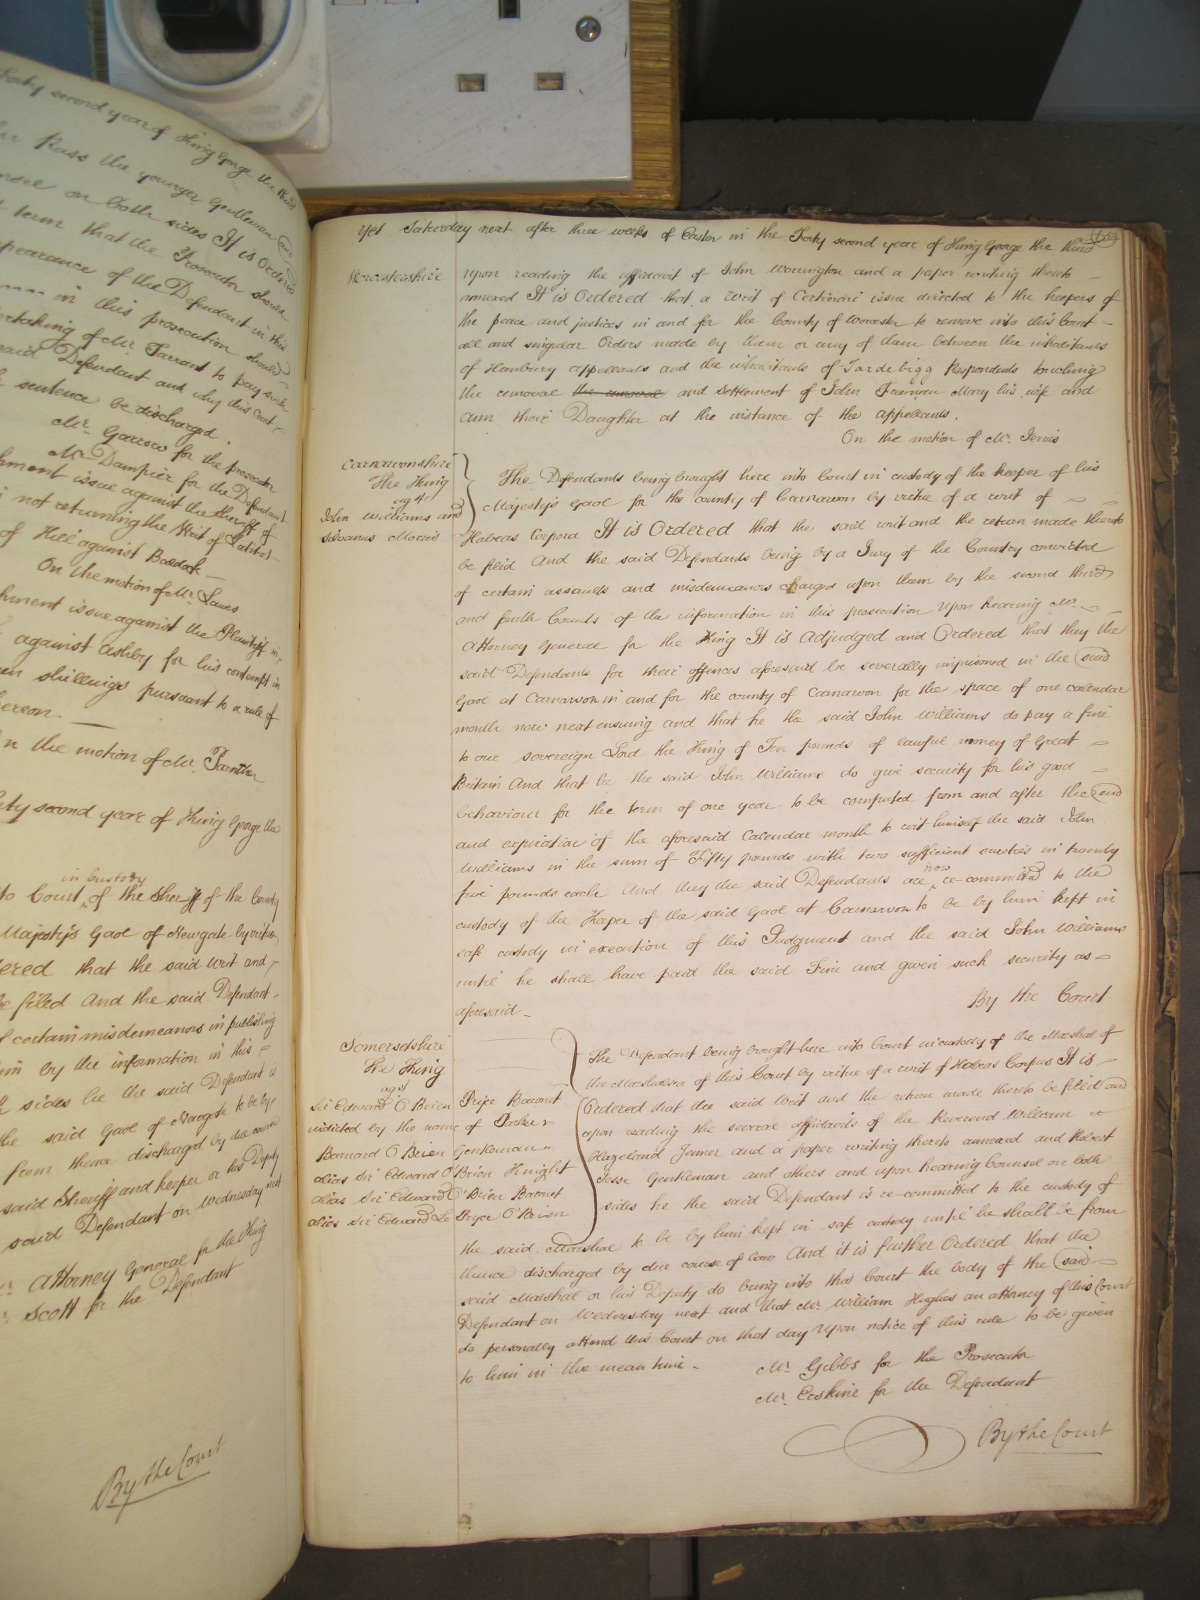 Forty second year of King George the third
Pass the younger Gentleman
on both sides It is Ordered
term that the Prosecutor should
appearance of the Defendant in the
in this prosecution should
undertaking of Mr. Tarrant to pay such
said Defendant and why this Court
sentence be discharged.
Mr. Garrow for the prosecutor
Mr. Dampier for the Defendant
issue against the sheriff of
not returning the Writ of Latitat
of Hill against Baddock
On the motion of Mr. Lawes
issue against the Plaintiff in
against Ashby for his contempt in
shillings pursuant to a rule of
hereon.
On the motion of Mr.
Forty second year of King George the
in Custody
to Court of the Sheriff of the County
Majesty's Gaol of Newgate by virtue
Ordered that the said writ and
be filed And the said Defendant
of certain misdemeanors in publishing
him by the information in this
sides he the said Defendant is
the said Gaol of Newgate to be by
from thence discharged by due course
said Sheriff and keeper or his Deputy
said Defendant on Wednesday next
Mr. Attorney General for the King
Mr. Scott for the Defendant
By the Court
Yet Saturday next after three weeks of Easter in the Forty second year of King George the third
Worcestershire
Upon reading the affidavit of John Worrington and a paper writing thereto
annexed It is Ordered that a writ of Certiorari issue directed to the keepers of
the peace and justices in and for the County of Worcester to remove into this Court
all and singular Orders made by them or any of them between the inhabitants
of Hanbury appellants and the inhabitants of Tardebigg Respondents touching
the removal the removal and settlement of John Freeman Mary his wife and
Ann their Daughter at the instance of the appellants.
On the motion of Mr. Jervis
Carnarvonshire
The King
agst
John Williams and
Silvanus Morris
The Defendants being brought here into Court in custody of the keeper of his
Majesty's Gaol for the county of Carnarvon by virtue of a writ of
Habeas Corpora It is Ordered that the said writ and the return made thereto
be filed And the said Defendants being by a Jury of the Country convicted
of certain assaults and misdemeanors charged upon them by the second third
and fourth Counts of the information in this prosecution Upon hearing Mr.
Attorney General for the King It is Adjudged and Ordered that they the
said Defendants for their offences aforesaid be severally imprisoned in the said
Gaol at Carnarvon in and for the county of Carnarvon for the space of one calendar
month now next ensuing and that he the said John Williams do pay a fine
to our sovereign Lord the King of Ten pounds of lawful money of Great
Britain And that he the said John Williams do give security for his good
behaviour for the term of one year to be computed from and after the end
and expiration of the aforesaid Calendar month to wit himself the said John
Williams in the sum of Fifty pounds with two sufficient sureties in twenty
five pounds each And they the said Defendants are now re-committed to the
custody of the Keeper of the said Gaol at Carnarvon to be by him kept in
safe custody in execution of this Judgment and the said John Williams
until he shall have paid the said Fine and given such security as
aforesaid
By the Court
Somersetshire
The King
agst
Sir Edward O'Brien Price Baronet
indicted by the name of
Barnard O'Brien Gentleman
alias Sir Edward O'Brien Knight
alias Sir Edward O'Brien Baronet
alias Sir Edward Le Pryce O'Brien
The Defendant being brought here into Court in custody of the Marshal of
the Marshalsea of this Court by virtue of a writ of Habeas Corpus It is
Ordered that the said Writ and the return made thereto be filed and
upon reading the several affidavits of the Reverend William
Hazeland Joiner and a paper writing thereto annexed and Robert
Jesse Gentleman and others and upon hearing Counsel on both
sides he the said Defendant is re-committed to the custody of
the said Marshal to be by him kept in safe custody until he shall be from
thence discharged by due course of law And it is further Ordered that the
said Marshal or his Deputy do bring into this Court the body of the said
Defendant on Wednesday next and that Mr. William Hughes an attorney of this Court
do personally attend this Court on that day Upon notice of this rule to be given
to him in the mean time
Mr. Gibbs for the Prosecutor
Mr. Erskine for the Defendant
By the Court